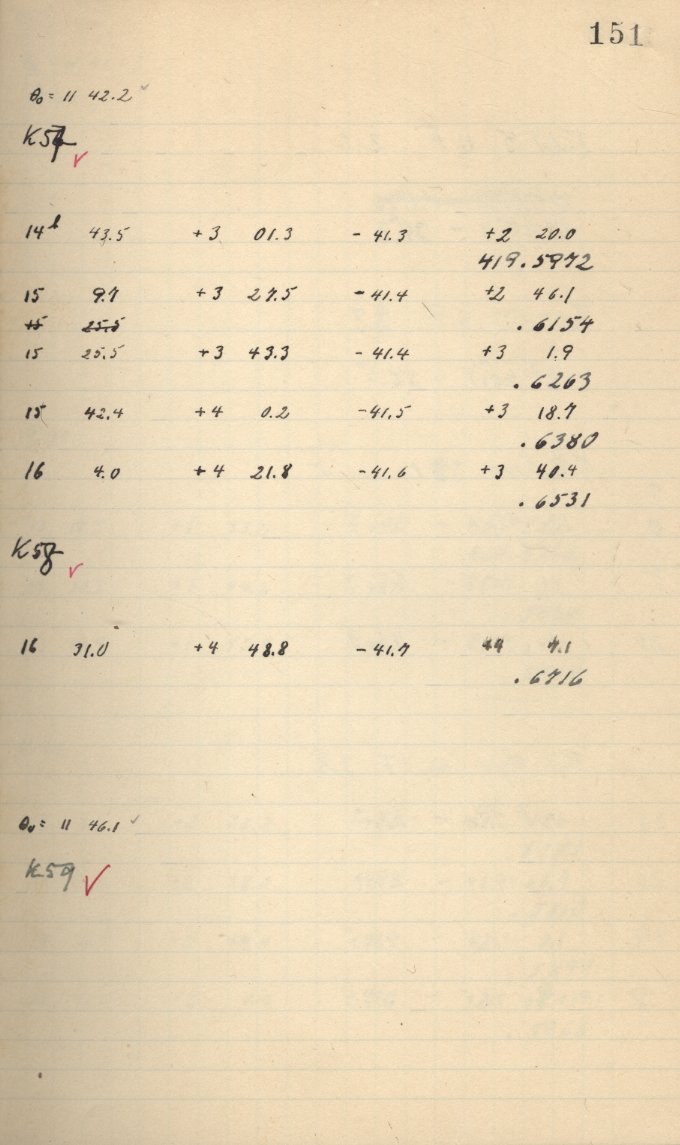 151
θ₀ = 11 42.2 ✓
✓
14ʰ 43.5 +3 01.3 - 41.3 +2 20.0
419.5972
15 9.7 +3 27.5 - 41.4 +2 46.1
.6154
15 25.5
15 25.5 +3 43.3 - 41.4 +3 1.9
.6263
15 42.4 +4 0.2 - 41.5 +3 18.7
.6380
16 4.0 +4 21.8 - 41.6 +3 40.4
.6531
K58 ✓
16 31.0 +4 48.8 - 41.7 +4 7.1
.6716
θ₀ = 11 46.1 ✓
K59 ✓